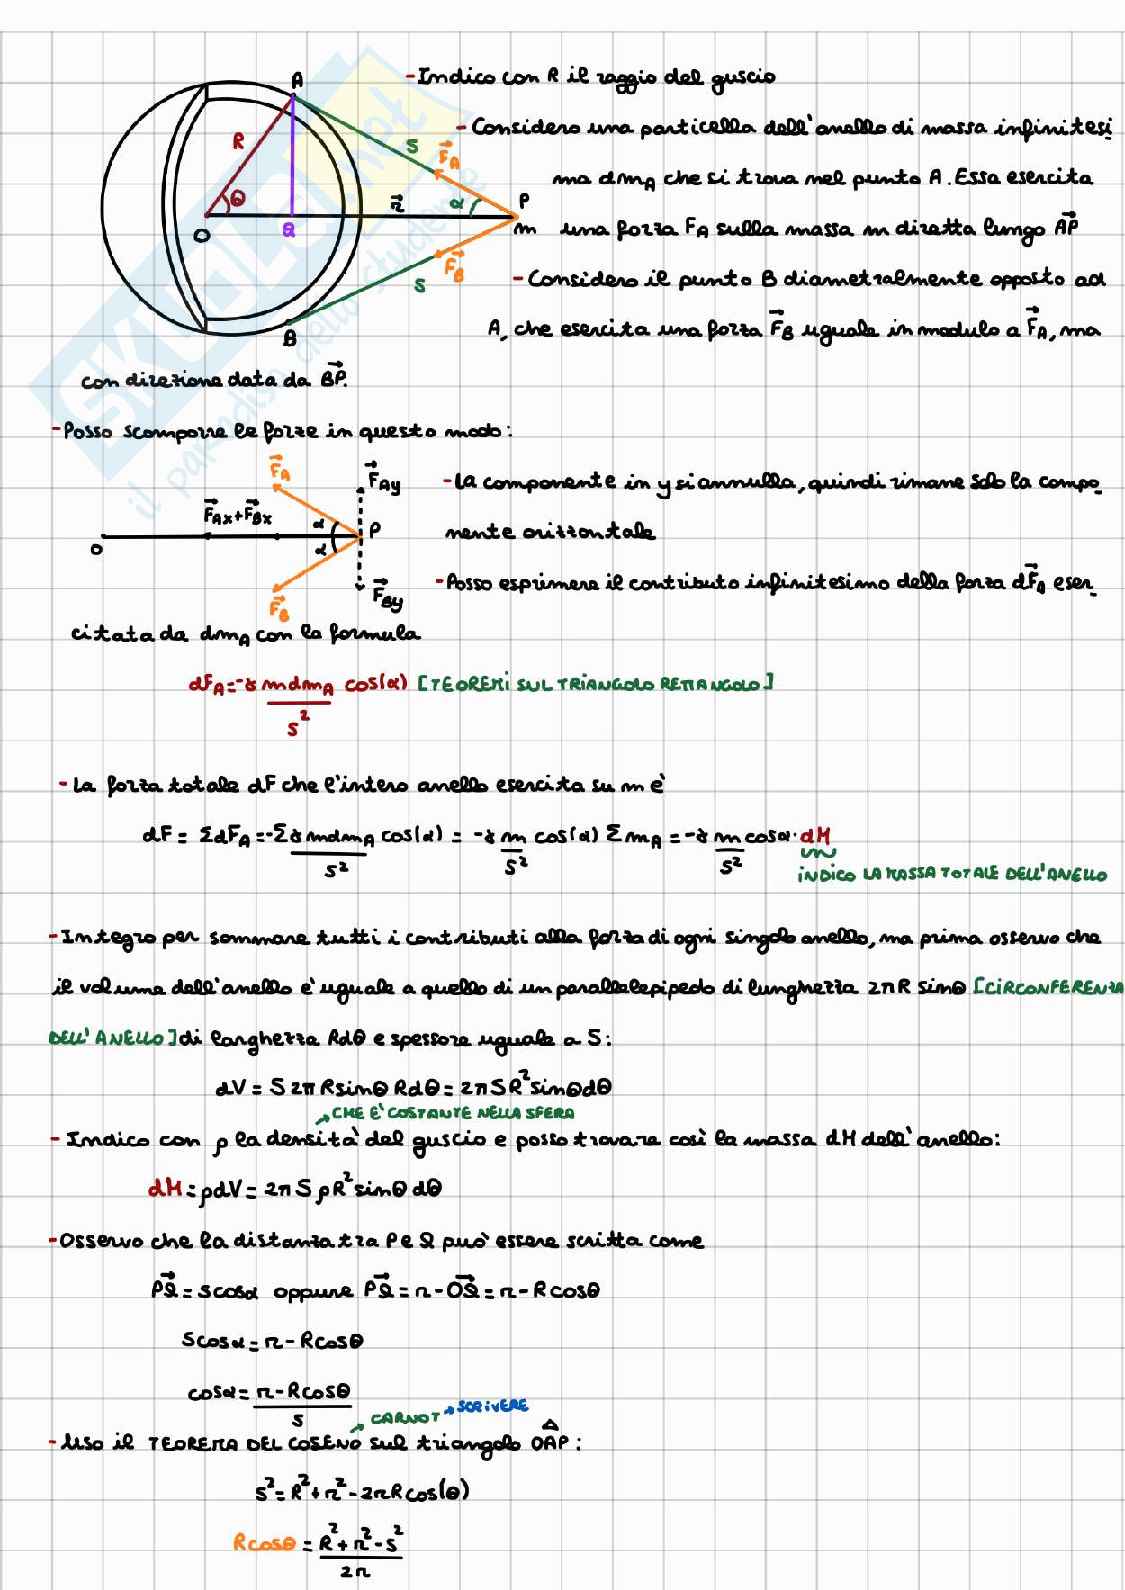 A
-Indico con R il raggio del guscio
-Considero una particella dell'anello di massa infinitesi
R
S
F_A
ma dm_A che si trova nel punto A. Essa esercita
θ
r
α
P
O
Q
m
una forza F_A sulla massa m diretta lungo AP
F_B
S
-Considero il punto B diametralmente opposto ad
B
A, che esercita una forza F_B uguale in modulo a F_A, ma
con direzione data da BP.
-Posso scomporre le forze in questo modo:
F_A
F_Ay
-La componente in y si annulla, quindi rimane solo la compo
F_Ax+F_Bx
α
P
nente orizzontale
O
α
F_B
F_By
-Posso esprimere il contributo infinitesimo della forza dF_A eser
citata da dm_A con la formula
dF_A=-γ m dm_A/s² cos(α) [TEOREMI SUL TRIANGOLO RETTANGOLO]
-La forza totale dF che l'intero anello esercita su m è
dF = ΣdF_A =-Σ γ m dm_A/s² cos(α) = -γ m/s² cos(α) Σ m_A = -γ m/s² cosα·dM
INDICO LA MASSA TOTALE DELL'ANELLO
-Integro per sommare tutti i contributi alla forza di ogni singolo anello, ma prima osservo che
il volume dell'anello è uguale a quello di un parallelepipedo di lunghezza 2πR sinθ [CIRCONFERENZA
DELL'ANELLO] di larghezza Rdθ e spessore uguale a S:
dV = S 2π R sinθ R dθ = 2π S R² sinθ dθ
CHE È COSTANTE NELLA SFERA
- Indico con ρ la densità del guscio e posso trovare così la massa dM dell'anello:
dM = ρdV = 2π S ρ R² sinθ dθ
-Osservo che la distanza tra P e Q può essere scritta come
PQ = s cosα oppure PQ = r - OQ = r - R cosθ
s cosα = r - R cosθ
cosα = r - R cosθ/s
CARNOT → SCRIVERE
-Uso il TEOREMA DEL COSENO sul triangolo OAP:
s² = R² + r² - 2rR cos(θ)
R cosθ = R² + r² - s²/2r
SKUOLA.net
il paradiso dello studente